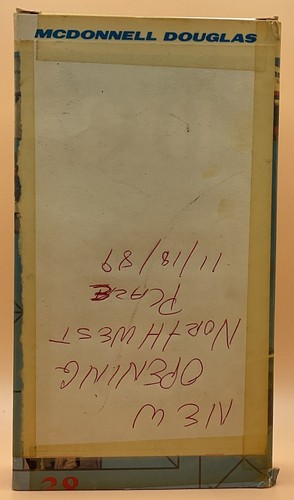 MCDONNELL DOUGLAS
NEW
OPENING
NORTHWEST
PLAZE
11/18/89
28